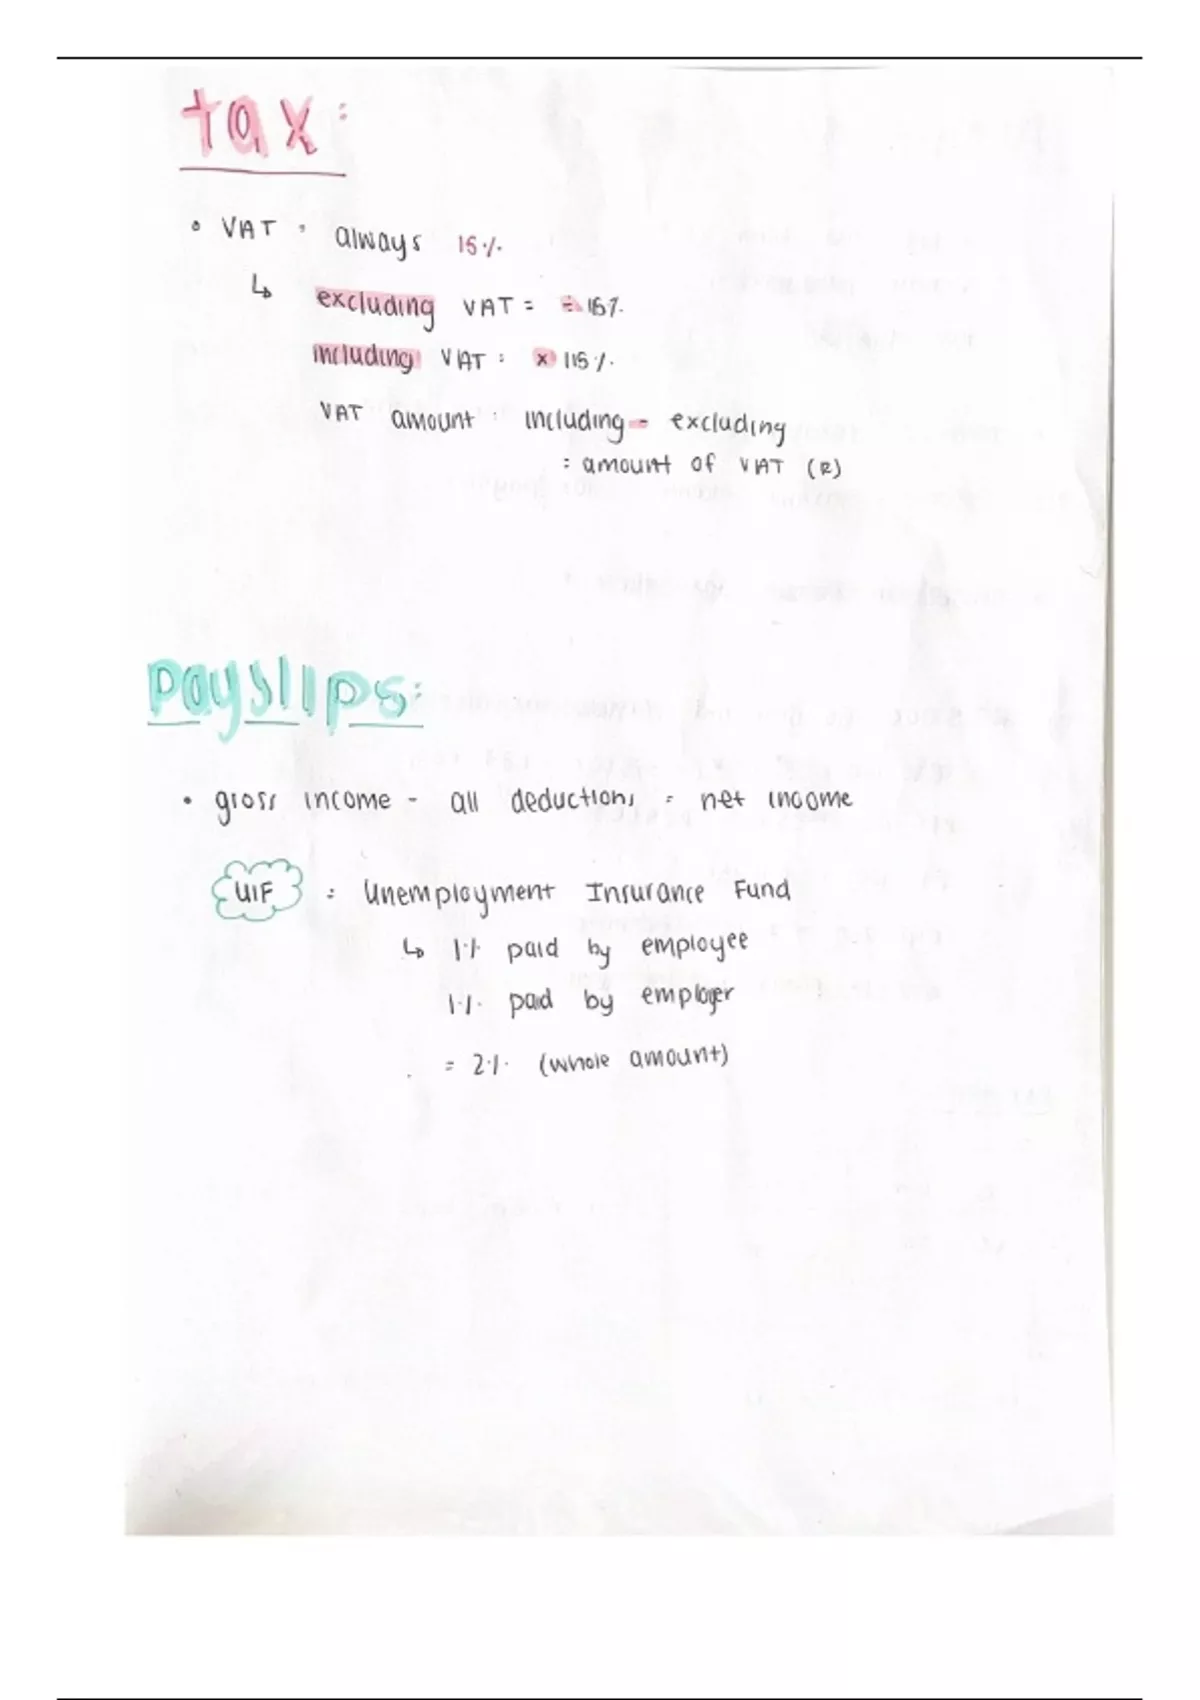 tax:
• VAT : always 15%
↳ excluding VAT = ÷ 15%
including VAT : × 115%
VAT amount : including - excluding
= amount of VAT (R)
payslips:
• gross income - all deductions = net income
UIF : Unemployment Insurance Fund
↳ 1% paid by employee
1% paid by employer
= 2% (whole amount)